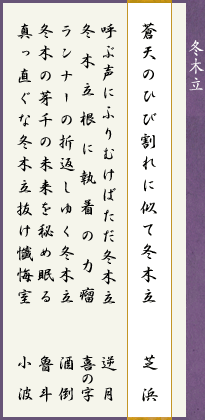 冬木立
蒼天のひび割れに似て冬木立　芝浜
呼ぶ声にふりむけばただ冬木立　逆月
冬木立根に執着の力瘤　喜の字
ランナーの折返しゆく冬木立　酒倒
冬木の芽千の未来を秘め眠る　魯斗
真っ直ぐな冬木立抜け懺悔室　小波